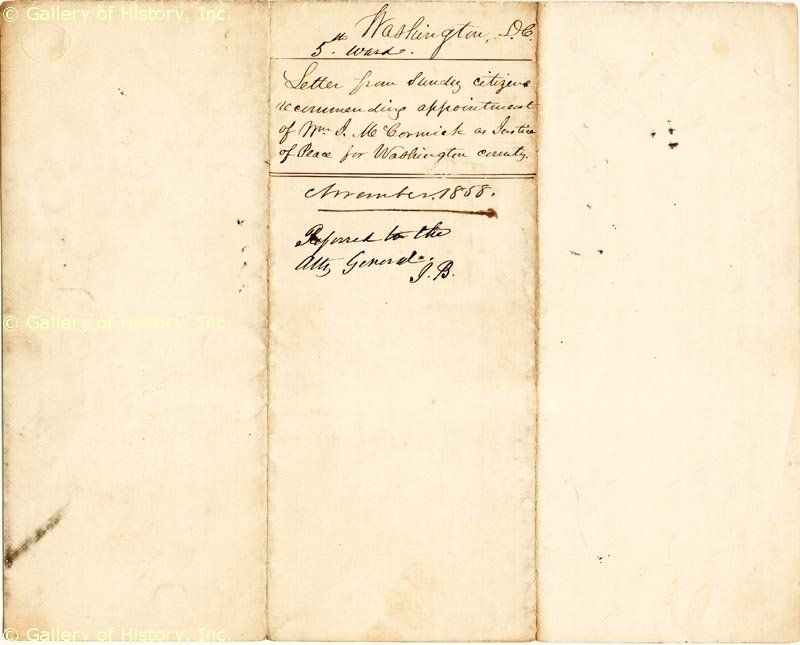 © Gallery of History, Inc.
Washington, D.C.
5th Ward.
Letter from Sundry citizens
recommending appointment
of Wm. J. McCormick as Justice
of Peace for Washington county.
November, 1858.
Referred to the
Atty General.
J. B.
© Gallery of History, Inc.
© Gallery of History, Inc.